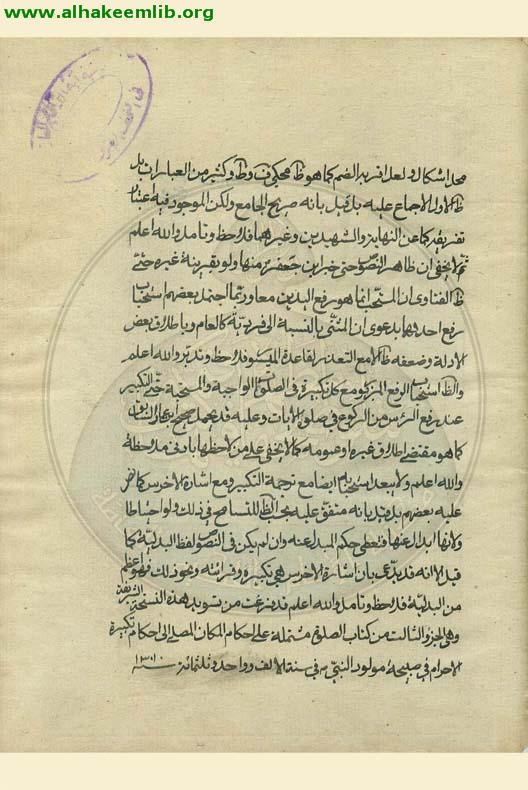 www.alhakeemlib.org
محل اشكال ولعل اقربه الضم كما هو ظ محكي ف وظ وكثير من العبارات بل
ظ الاول الاجماع عليه بل قيل بانه صريح الجامع ولكن الموجود فيه اعتبار
تفريقه كما عن النهاية والشهيدين وغيرهما فلاحظ وتامل والله اعلم
ثم لا يخفى ان ظاهر النصوص حتى خبر ابن جعفر منها ولو بقرينة غيره حتى
ظ الفتاوى ان المستحب انما هو رفع اليدين معا وربما احتمل بعضهم استحباب
رفع احديهما بدعوى ان المثنى بالنسبة الى فرديه كالعام وباطلاق بعض
الادلة وضعفه ظ الا مع التعذر لقاعدة الميسور فلاحظ وتدبر والله اعلم
والظ استحباب الرفع المزكور مع كل تكبيرة في الصلوة الواجبة والمستحبة حتى التكبير
عند رفع الرأس من الركوع في صلوة الايات وعليه قد يحمل صحيح
كما هو مقتضى اطلاق غيره او عمومه كما لا يخفى على من لاحظها بادنى ملاحظة
والله اعلم ولا يبعد استحبابه ايضا مع ترجمة التكبير ومع اشارة الاخرس كما نص
عليه بعضهم بل قيل بانه متفق عليه بحسب الظ للتسامح في ذلك ولو احتياطا
ولانها ابدال عنها فتعطى حكم المبدل عنه وان لم يكن في النصوص لفظ البدلية كما
قيل الا انه قد يدعى بان اشارة الاخرس هي تكبيره وقرائته ونحو ذلك فهو اعظم
من البدلية فلاحظ وتامل والله اعلم قد فرغت من تسويد هذه النسخة الشريفة
وهي الجزو الثالث من كتاب الصلوة مشتملة على احكام المكان المصلي الى احكام تكبيرة
الاحرام في صبيحة مولود النبي ص في سنة الالف وواحد وثلثمائة سنة ١٣٠١